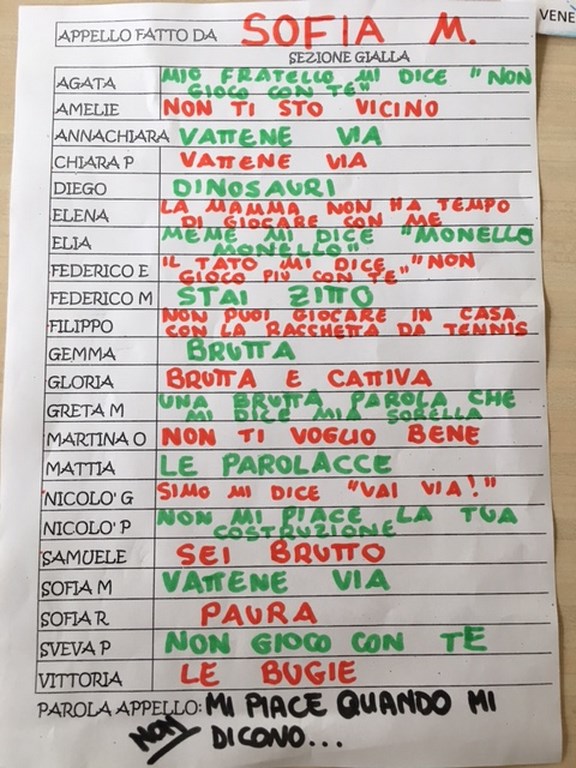 VENE
APPELLO FATTO DA SOFIA M.
SEZIONE GIALLA
AGATA MIO FRATELLO MI DICE "NON
GIOCO CON TE"
AMELIE NON TI STO VICINO
ANNACHIARA VATTENE VIA
CHIARA P VATTENE VIA
DIEGO DINOSAURI
ELENA LA MAMMA NON HA TEMPO
DI GIOCARE CON ME
ELIA MEME MI DICE "MONELLO
MONELLO"
FEDERICO E IL TATO MI DICE "NON
GIOCO PIÙ CON TE"
FEDERICO M STAI ZITTO
FILIPPO NON PUOI GIOCARE IN CASA
CON LA RACCHETTA DA TENNIS
GEMMA BRUTTA
GLORIA BRUTTA E CATTIVA
GRETA M UNA BRUTTA PAROLA CHE
MI DICE MIA SORELLA
MARTINA O NON TI VOGLIO BENE
MATTIA LE PAROLACCE
NICOLO' G SIMO MI DICE "VAI VIA!"
NICOLO' P NON MI PIACE LA TUA
COSTRUZIONE
SAMUELE SEI BRUTTO
SOFIA M VATTENE VIA
SOFIA R PAURA
SVEVA P NON GIOCO CON TE
VITTORIA LE BUGIE
PAROLA APPELLO: MI PIACE QUANDO MI
NON DICONO...